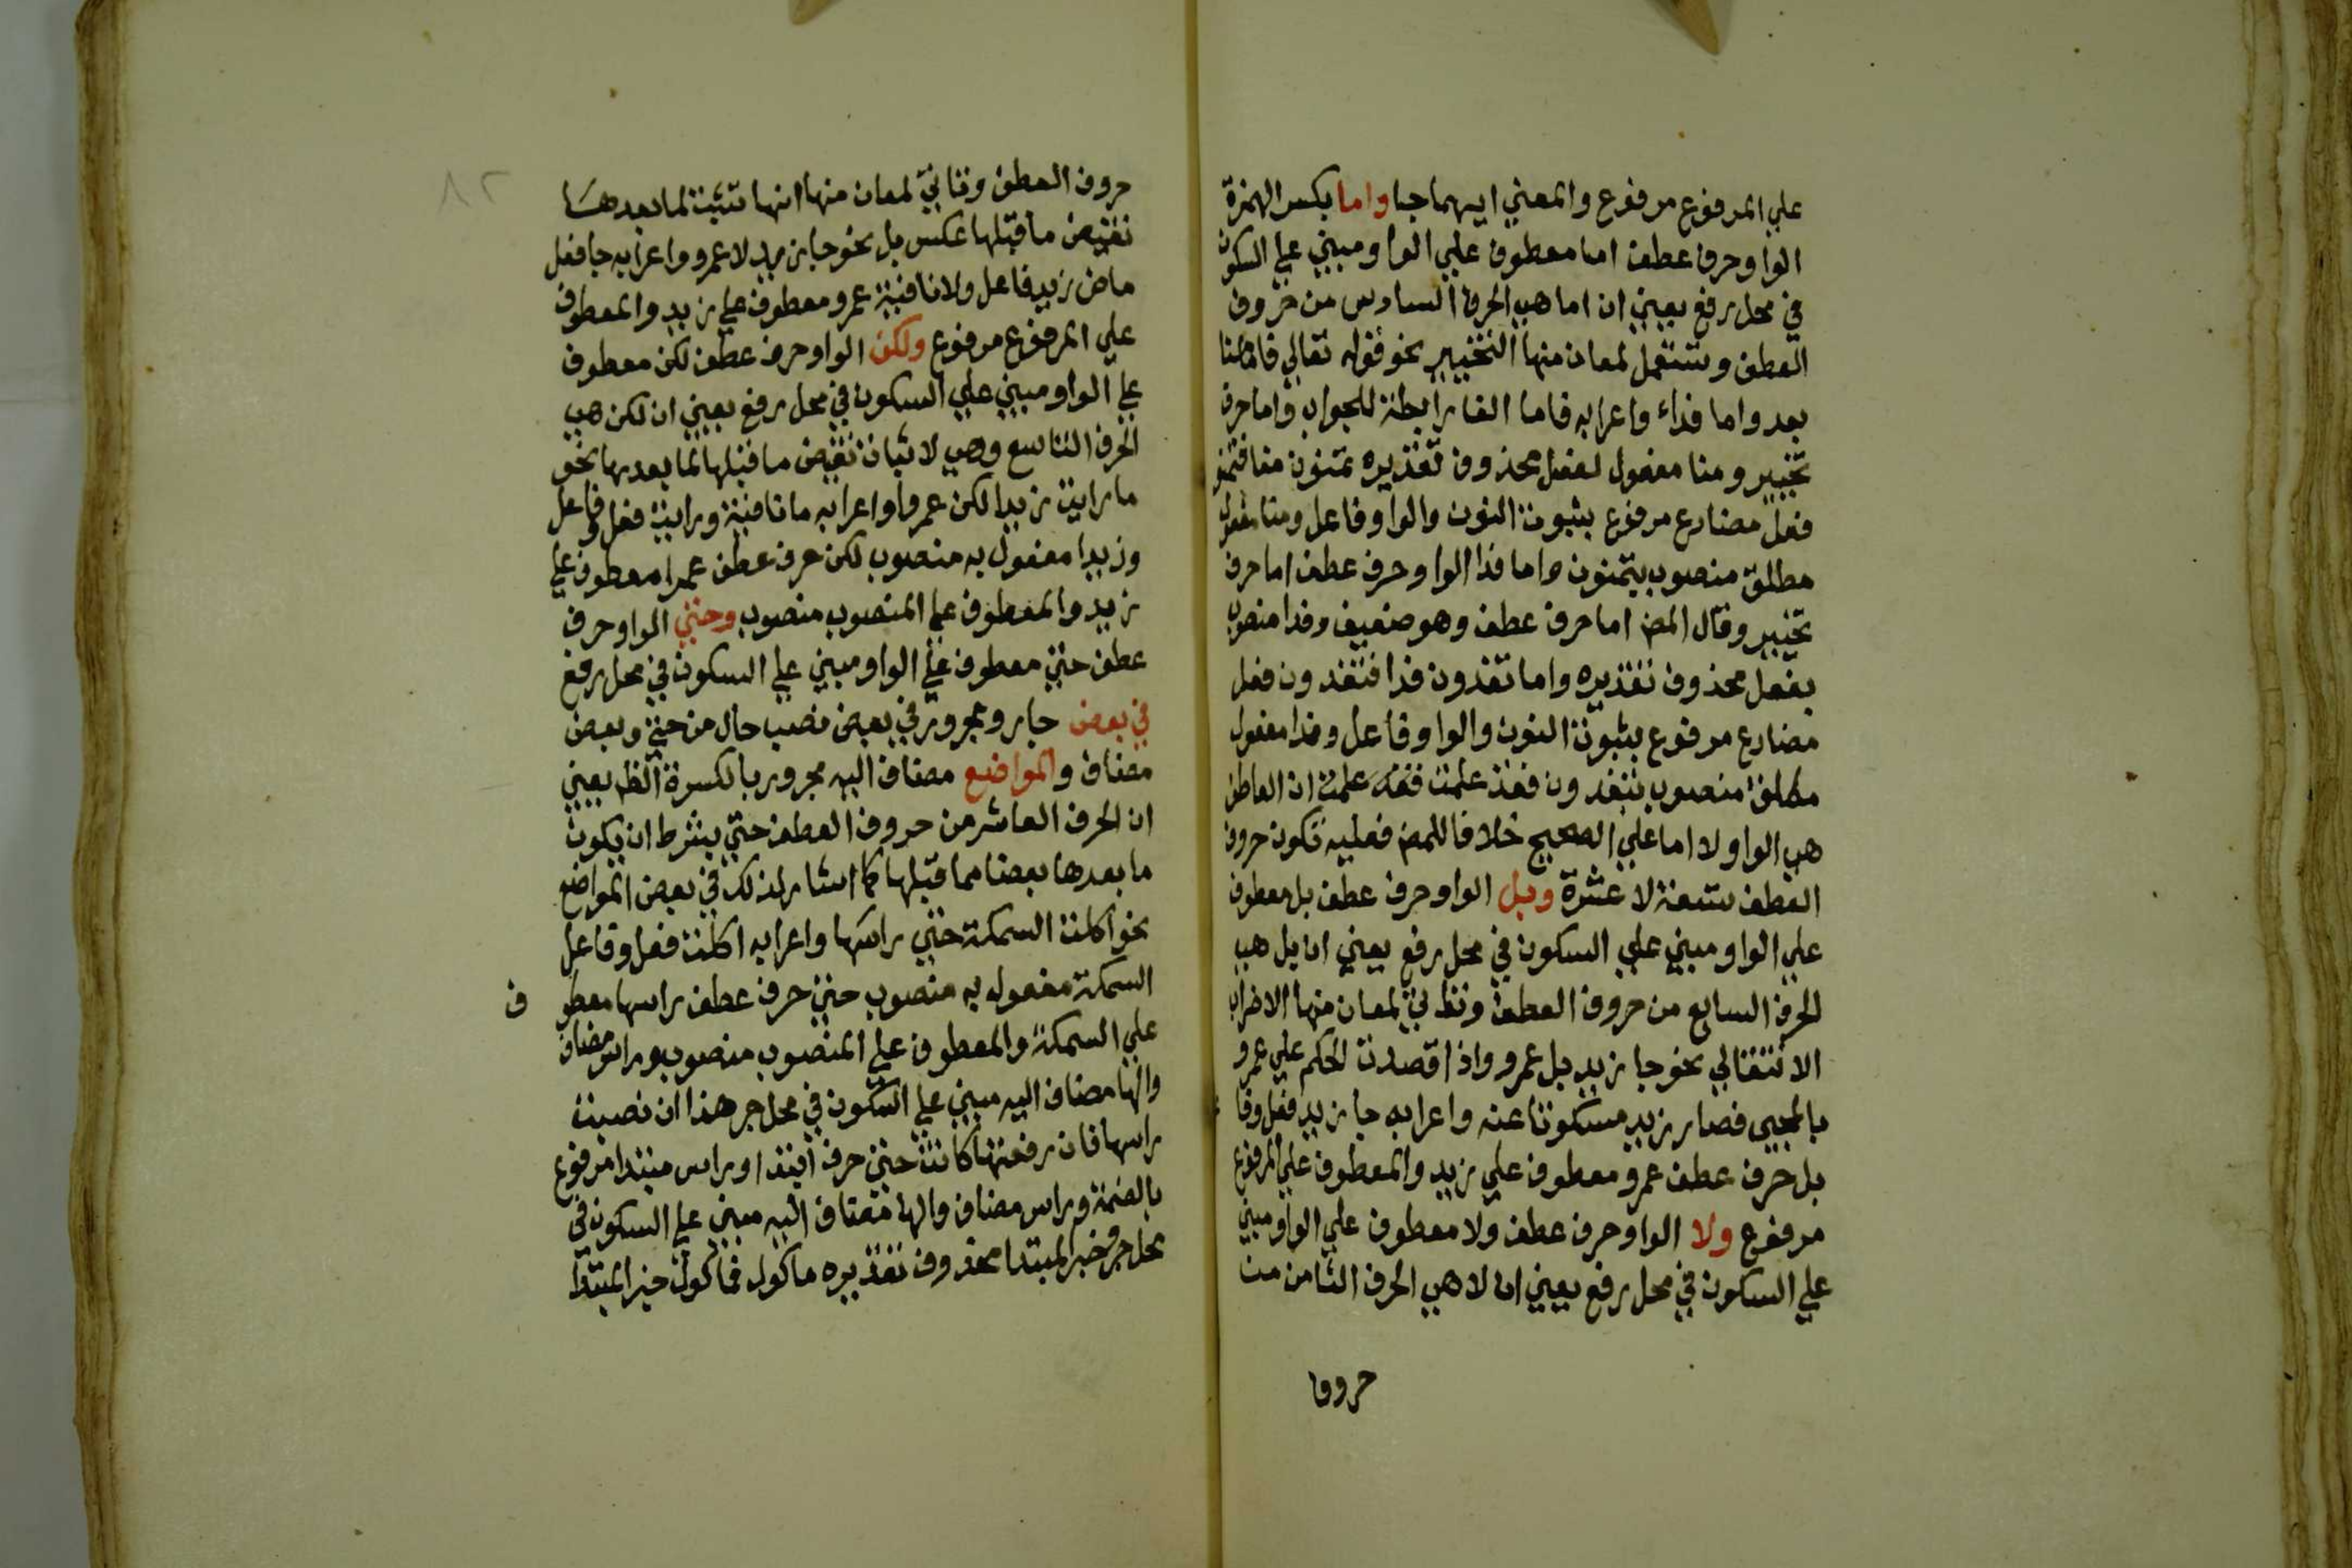 علي المرفوع مرفوع والمعني ايهما جا واما بكسر الهمزة
الواو حرف عطف اما معطوف علي الواو ومبني علي السكون
في محل رفع يعني ان اما هي الحرف السادس من حروف
العطف وتستعمل لمعان منها التخيير نحو قوله تعالي فاما منا
بعد واما فداء واعرابه فاما الفا رابطة للجواب واما حرف
تخيير ومنا مفعول لفعل محذوف تقديره تمنون منا فتمنو
فعل مضارع مرفوع بثبوت النون والواو فاعل ومنا مفعول
مطلق منصوب بتمنون واما فدا الواو حرف عطف اما حرف
تخيير وقال المص اما حرف عطف وهو ضعيف وفدا منصوب
بفعل محذوف تقديره واما تفدون فدا فتفدون فعل
مضارع مرفوع بثبوت النون والواو فاعل وفدا مفعول
مطلق منصوب بتفدون فقد علمت ان العاطف
هي الواو لا اما علي الصحيح خلافا للمص فعليه فكون حروف
العطف تسعة لا عشرة وبل الواو حرف عطف بل معطوف
علي الواو ومبني علي السكون في محل رفع يعني ان بل هي
الحرف السابع من حروف العطف وتاتي لمعان منها الاضراب
الانتقالي نحو جا زيد بل عمرو واذا قصدت الحكم علي عمرو
بالمجيى فصار زيد مسكوتا عنه واعرابه جا زيد فعل وفا
بل حرف عطف عمرو معطوف علي زيد والمعطوف علي المرفوع
مرفوع ولا الواو حرف عطف ولا معطوف علي الواو ومبني
علي السكون في محل رفع يعني ان لا هي الحرف الثامن من
حروف
٨٢
حروف العطف وتاتي لمعان منها انها تثبت لما بعدها
نقيض ما قبلها عكس بل نحو جا زيد لا عمرو واعرابه جا فعل
ماض زيد فاعل ولا نافية عمرو معطوف علي زيد والمعطوف
علي المرفوع مرفوع ولكن الواو حرف عطف لكن معطوف
علي الواو ومبني علي السكون في محل رفع يعني ان لكن هي
الحرف التاسع وهي لاثبات نقيض ما قبلها لما بعدها نحو
ما رايت زيدا لكن عمروا واعرابه ما نافية ورايت فعل وفاعل
وزيدا مفعول به منصوب لكن حرف عطف عمرا معطوف علي
زيد والمعطوف علي المنصوب منصوب وحتي الواو حرف
عطف حتي معطوف علي الواو ومبني علي السكون في محل رفع
في بعض جار ومجرور في بعض نصب حال من حتي وبعض
مضاف والمواضع مضاف اليه مجرور بالكسرة الظ يعني
ان الحرف العاشر من حروف العطف حتي بشرط ان يكون
ما بعدها بعضا مما قبلها كما اشار لذلك في بعض المواضع
نحو اكلت السمكة حتي راسها واعرابه اكلت فعل وفاعل
السمكة مفعول به منصوب حتي حرف عطف راسها معطو ف
علي السمكة والمعطوف علي المنصوب منصوب وراس مضاف
والها مضاف اليه مبني علي السكون في محل جر هذا ان نصبت
راسها فان رفعتها كانت حتي حرف ابتدا وراس مبتدا مرفوع
بالضمة وراس مضاف والها مضاف اليه مبني علي السكون في
محل جر وخبر المبتدا محذوف تقديره ماكول فماكول خبر المبتدا